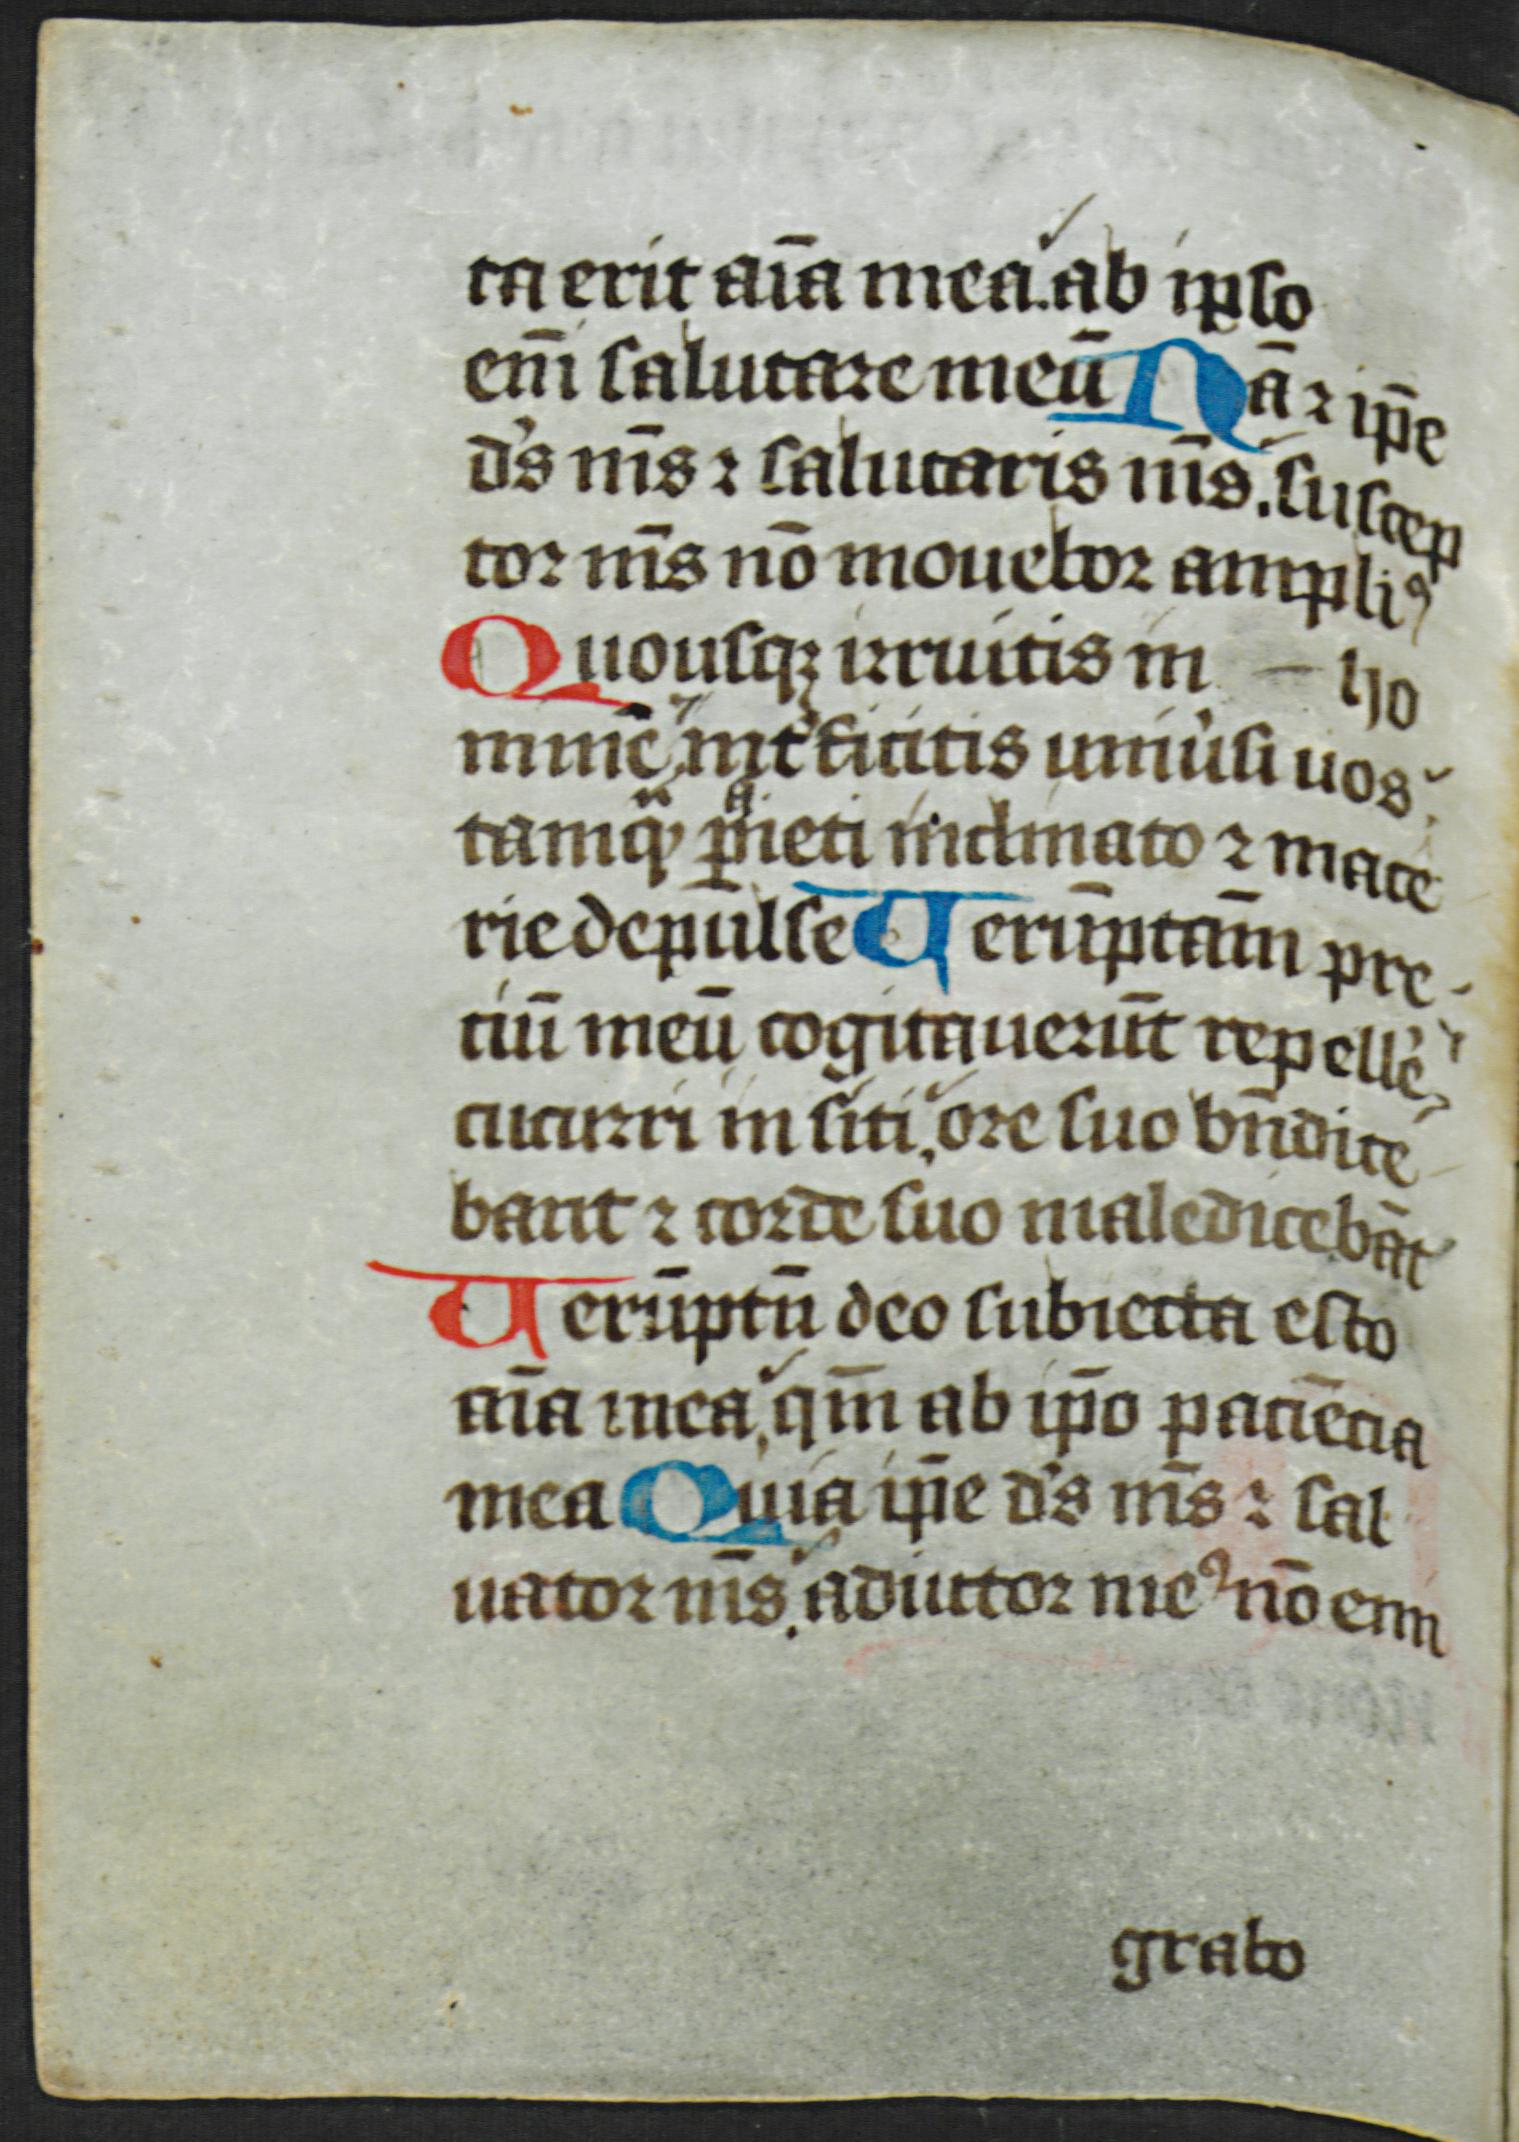 ta erit aīa mea. ab ipso
enī salutare meū Nā ⁊ ip̄e
d's m̄s ⁊ salutaris m̄s. suscep
tor m̄s nō mouebor ampliꝰ
Quousqꝫ irruitis in ho
minē int'ficitis uniu'si uos
tamqͣ pͣieti inclinato ⁊ mace
rie depulse Uerūptam̄ pre
tiū meū cogitauerūt repelle'
cucurri in siti, ore suo bn̄dice
bant ⁊ corde suo maledicebāt
Uerūptū deo subiecta esto
aīa mea, qm̄ ab ip̄o paciēcia
mea Quia ip̄e d's m̄s ⁊ sal
uator m̄s. adiutor meꝰ nō emi
grabo